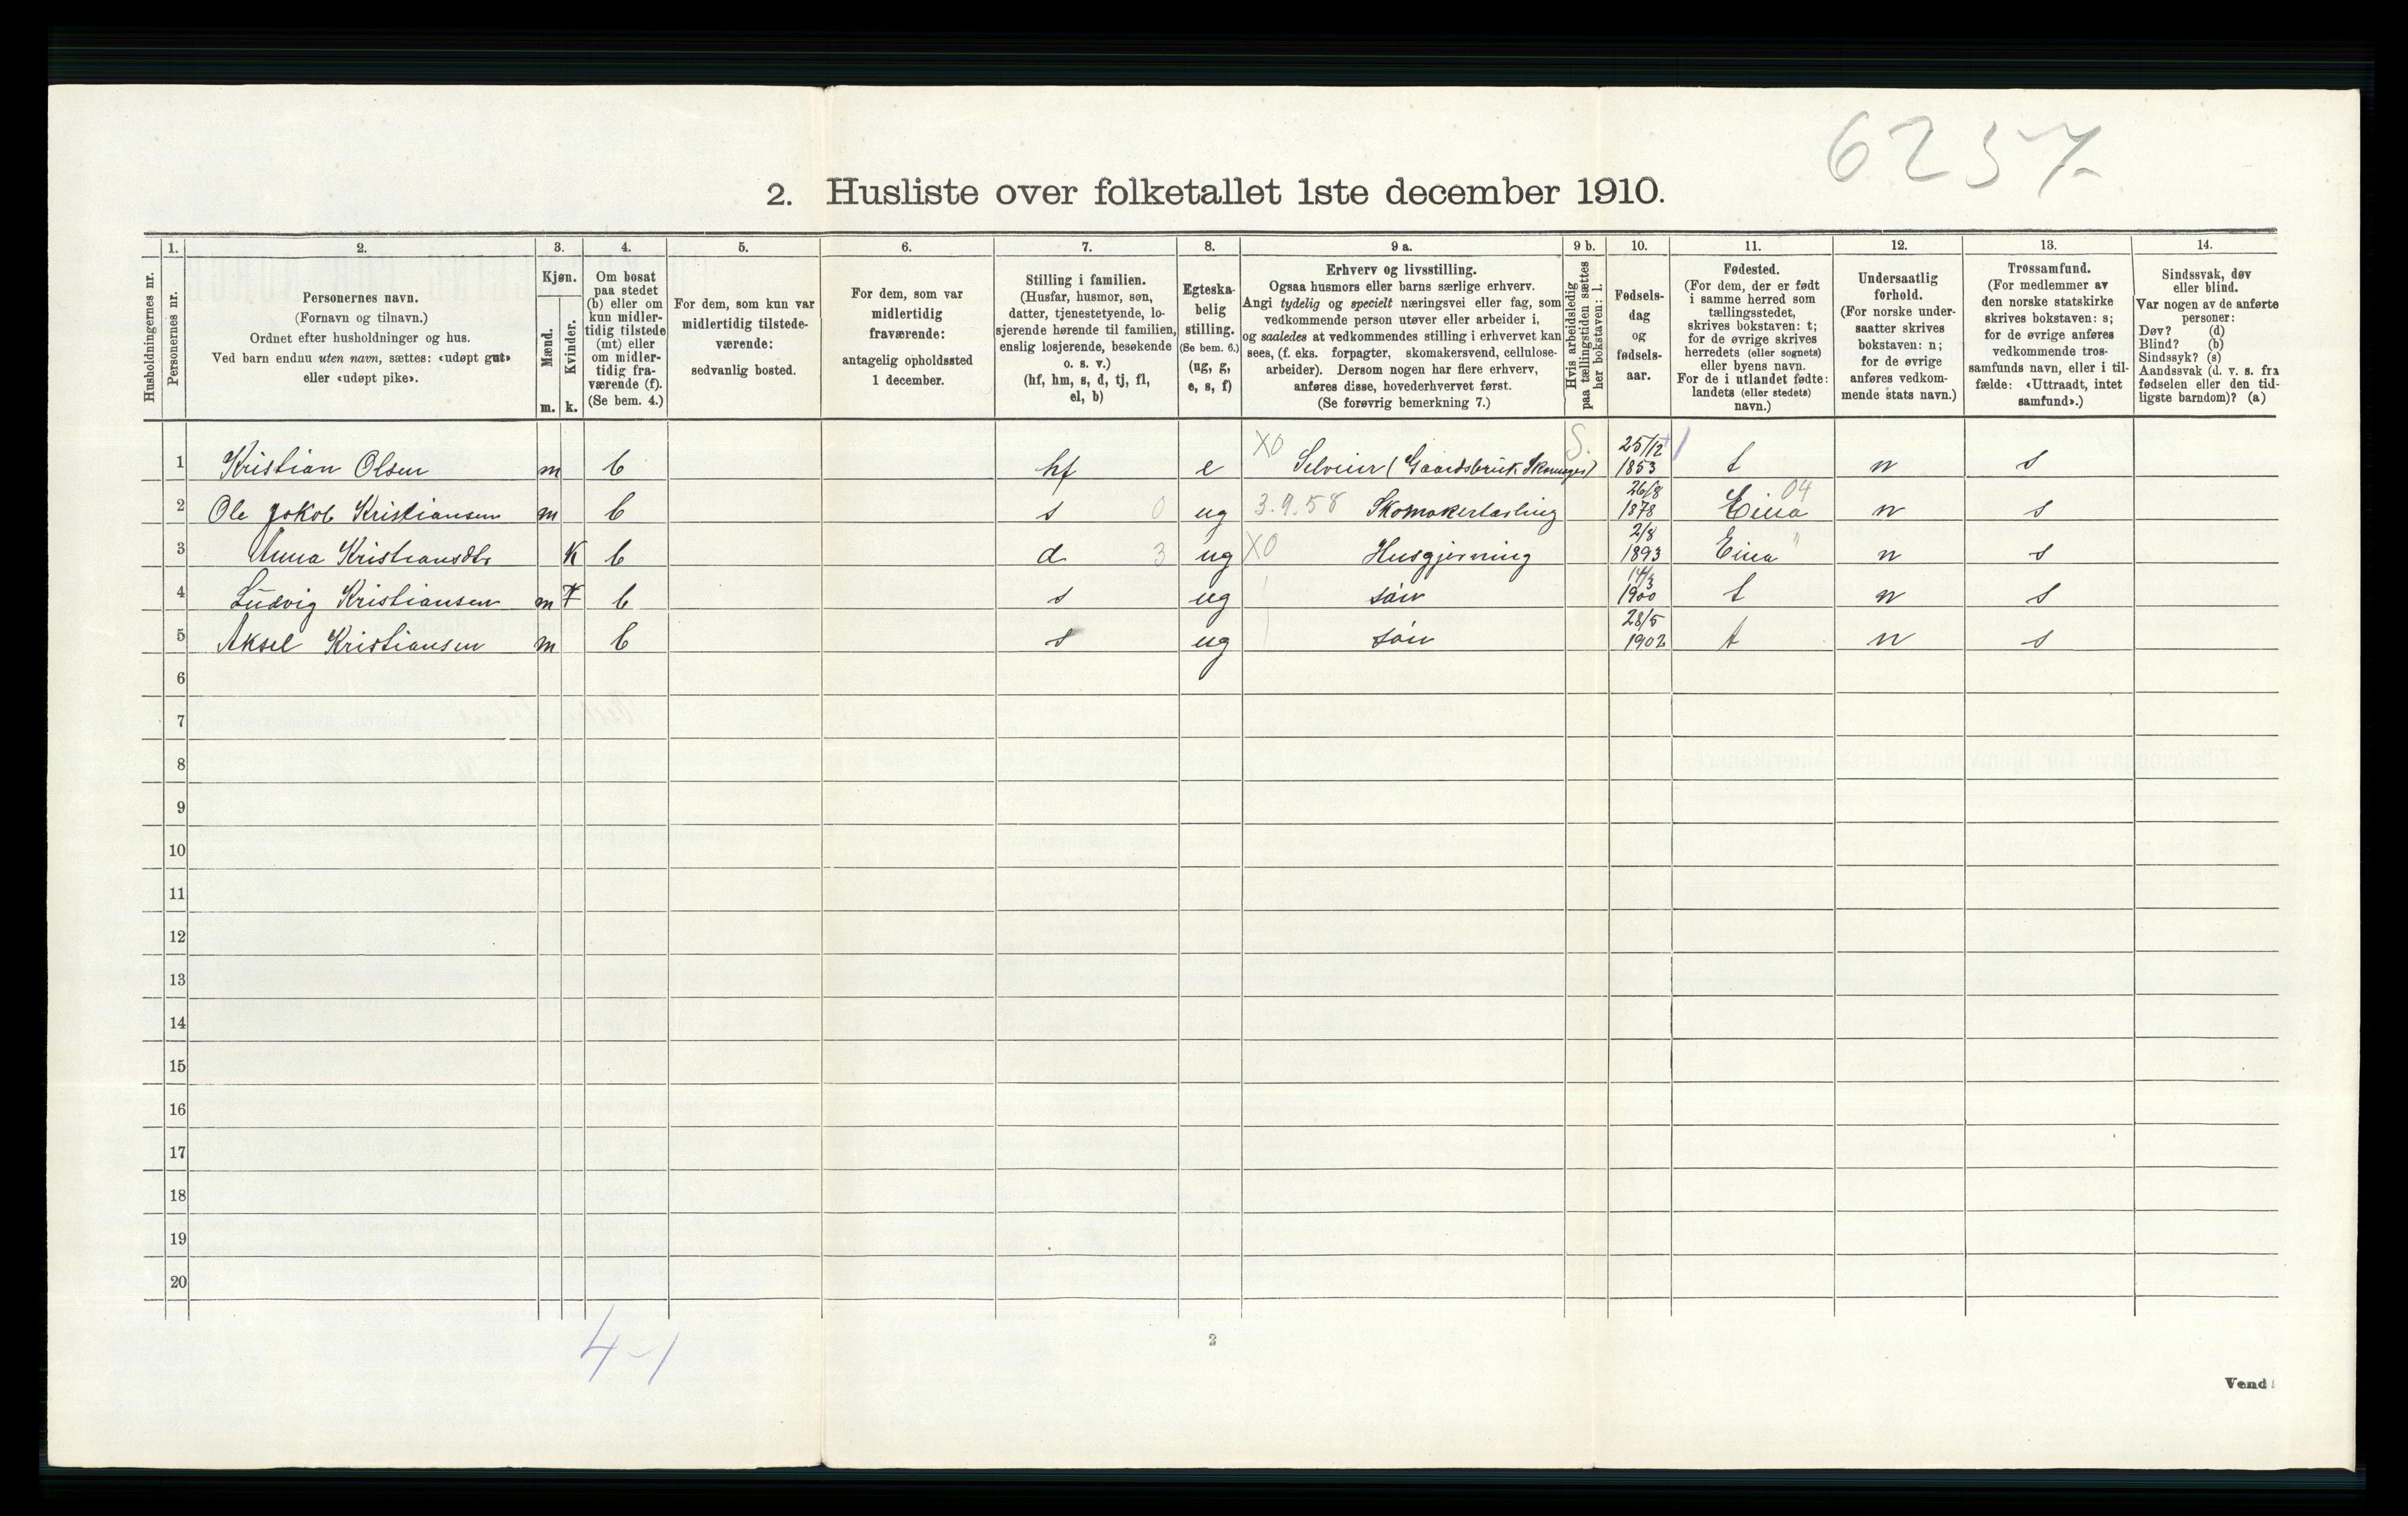 6257-
2. Husliste over folketallet 1ste december 1910.
Husholdningernes nr.
1.
Personernes nr.
2.
Personernes navn.
(Fornavn og tilnavn.)
Ordnet efter husholdninger og hus.
Ved barn endnu uten navn, sættes: «udøpt gut»
eller «udøpt pike».
3.
Kjøn.
Mænd.
m.
Kvinder.
k.
4.
Om bosat
paa stedet
(b) eller om
kun midler-
tidig tilstede
(mt) eller
om midler-
tidig fra-
værende (f).
(Se bem. 4.)
5.
For dem, som kun var
midlertidig tilstede-
værende:
sedvanlig bosted.
6.
For dem, som var
midlertidig
fraværende:
antagelig opholdssted
1 december.
7.
Stilling i familien.
(Husfar, husmor, søn,
datter, tjenestetyende, lo-
sjerende hørende til familien,
enslig losjerende, besøkende
o. s. v.)
(hf, hm, s, d, tj, fl,
el, b)
8.
Egteska-
belig
stilling.
(Se bem. 6.)
(ug, g,
e, s, f)
9 a.
Erhverv og livsstilling.
Ogsaa husmors eller barns særlige erhverv.
Angi tydelig og specielt næringsvei eller fag, som
vedkommende person utøver eller arbeider i,
og saaledes at vedkommendes stilling i erhvervet kan
sees, (f. eks. forpagter, skomakersvend, cellulose-
arbeider). Dersom nogen har flere erhverv,
anføres disse, hovederhvervet først.
(Se forøvrig bemerkning 7.)
9 b.
Hvis arbeidsledig
paa tællingstiden sættes
her bokstaven: l.
10.
Fødsels-
dag
og
fødsels-
aar.
11.
Fødested.
(For dem, der er født
i samme herred som
tællingsstedet,
skrives bokstaven: t;
for de øvrige skrives
herredets (eller sognets)
eller byens navn.
For de i utlandet fødte:
landets (eller stedets)
navn.)
12.
Undersaatlig
forhold.
(For norske under-
saatter skrives
bokstaven: n;
for de øvrige
anføres vedkom-
mende stats navn.)
13.
Trossamfund.
(For medlemmer av
den norske statskirke
skrives bokstaven: s;
for de øvrige anføres
vedkommende tros-
samfunds navn, eller i til-
fælde: «Uttraadt, intet
samfund».)
14.
Sindssvak, døv
eller blind.
Var nogen av de anførte
personer:
Døv? (d)
Blind? (b)
Sindssyk? (s)
Aandssvak (d. v. s. fra
fødselen eller den tid-
ligste barndom)? (a)
1 Kristian Olsen m b hf e XO Selveier (Gaardsbruk S. 25/12 1853 t n s
2 Ole Jakob Kristiansen m b s 0 ug 3.9.58 Skomakerlærling 26/8 1878 Eina 04 n s
3 Anna Kristiansdtr K b d 3 ug XO Husgjerning 2/8 1893 Eina " n s
4 Ludvig Kristiansen m b s ug søn 14/3 1900 t n s
5 Aksel Kristiansen m b s ug søn 28/5 1902 t n s
6
7
8
9
10
11
12
13
14
15
16
17
18
19
20
4-1
2
Vend